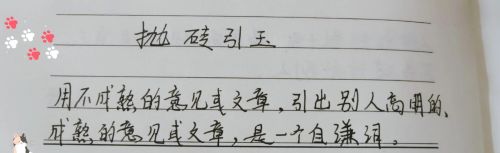 抛砖引玉
用不成熟的意见或文章，引出别人高明的、
成熟的意见或文章，是一个自谦词。